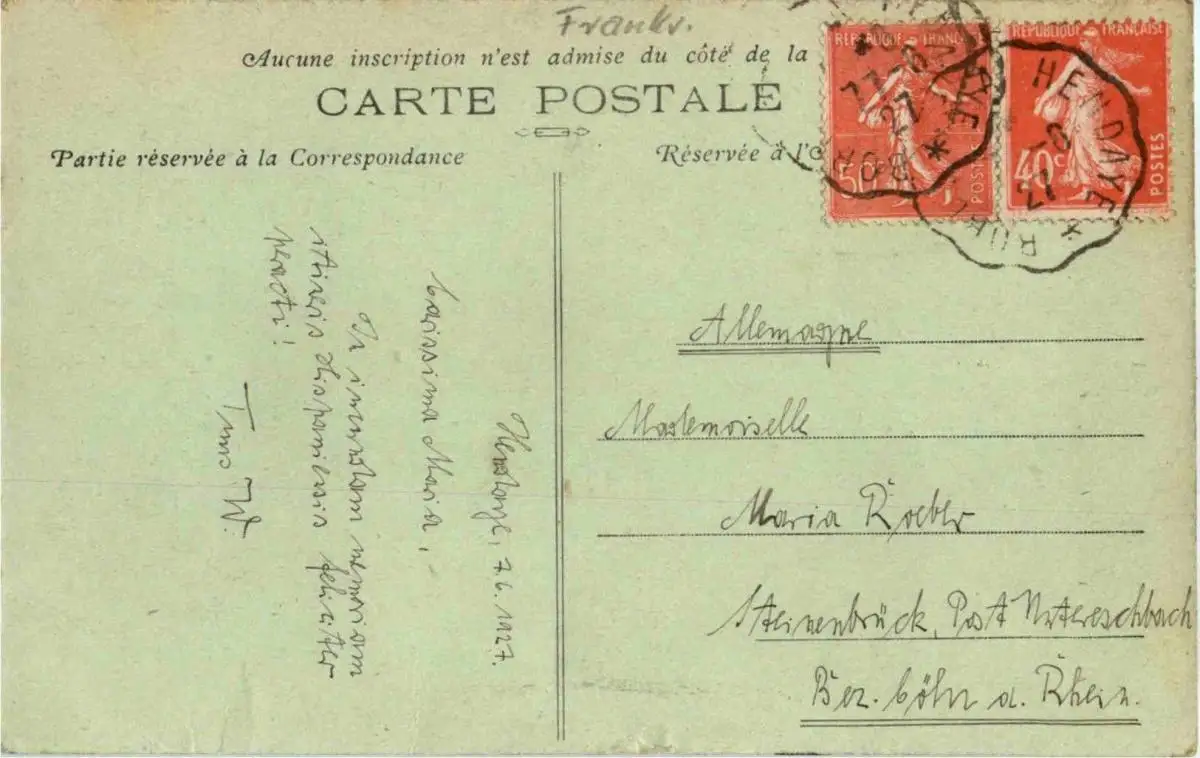 Frankr.
Aucune inscription n'est admise du côté de la
CARTE POSTALE
Partie réservée à la Correspondance
Réservée à l'
REPUBLIQUE FRANÇAISE
50
POSTES
REPUBLIQUE FRANÇAISE
40c
POSTES
HENDAYE
27
Hendaye, 7.6.1927.
Carissima Maria,
In iucundam memoriam
itineris Hispaniensis feliciter
peracti!
Tuus W.
Allemagne
Mademoiselle
Maria Roeber
Steinenbrück, Post Untereschbach
Bez. Cöln a. Rhein.